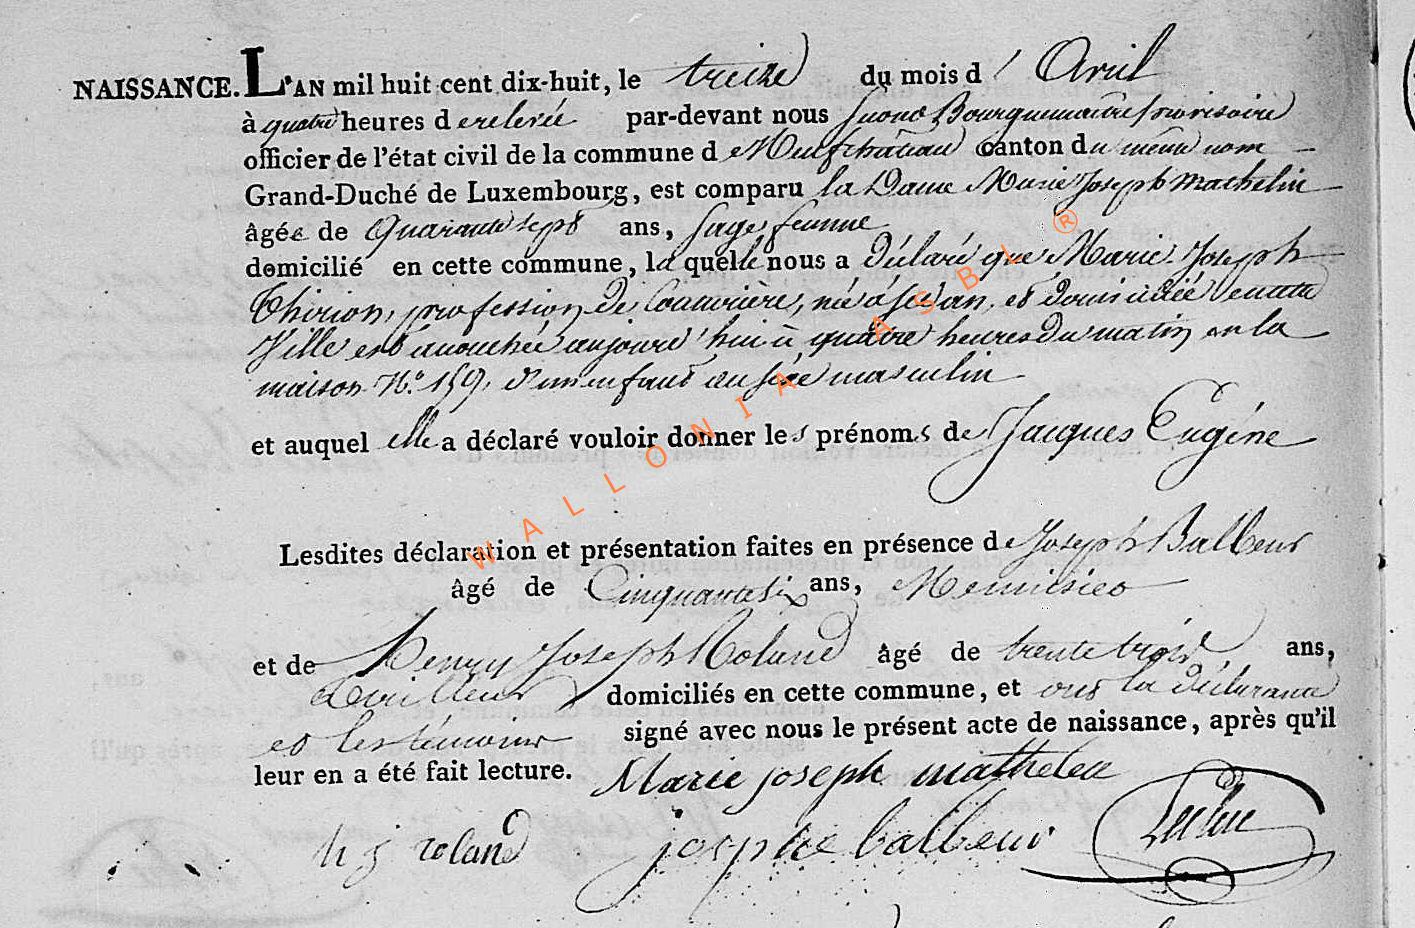 NAISSANCE. L'AN mil huit cent dix-huit, le treize du mois d'Avril
à quatre heures de relevée par-devant nous Second Bourguemaitre provisoire
officier de l'état civil de la commune de Neufchateau canton du même nom
Grand-Duché de Luxembourg, est comparu la Dame Marie Joseph Mathelin
âgée de Quarante sept ans, Sage femme
domicilié en cette commune, laquelle nous a déclaré que Marie Joseph
Thirion, profession de Couturière, née à Sedan, et domiciliée en cette
Ville est accouchée aujourd'hui à quatre heures du matin en la
maison N.º 159, d'un enfant du sexe masculin
et auquel elle a déclaré vouloir donner les prénoms de Jacques Eugéne
Lesdites déclaration et présentation faites en présence de Joseph Balbeur
âgé de Cinquante six ans, Menuisier
et de Henry Joseph Roland âgé de trente trois ans,
domiciliés en cette commune, et ont la déclarante
et les témoins signé avec nous le présent acte de naissance, après qu'il
leur en a été fait lecture. Marie joseph mathelen
h j roland josephe balbeur
WALLONIA ASBL ®